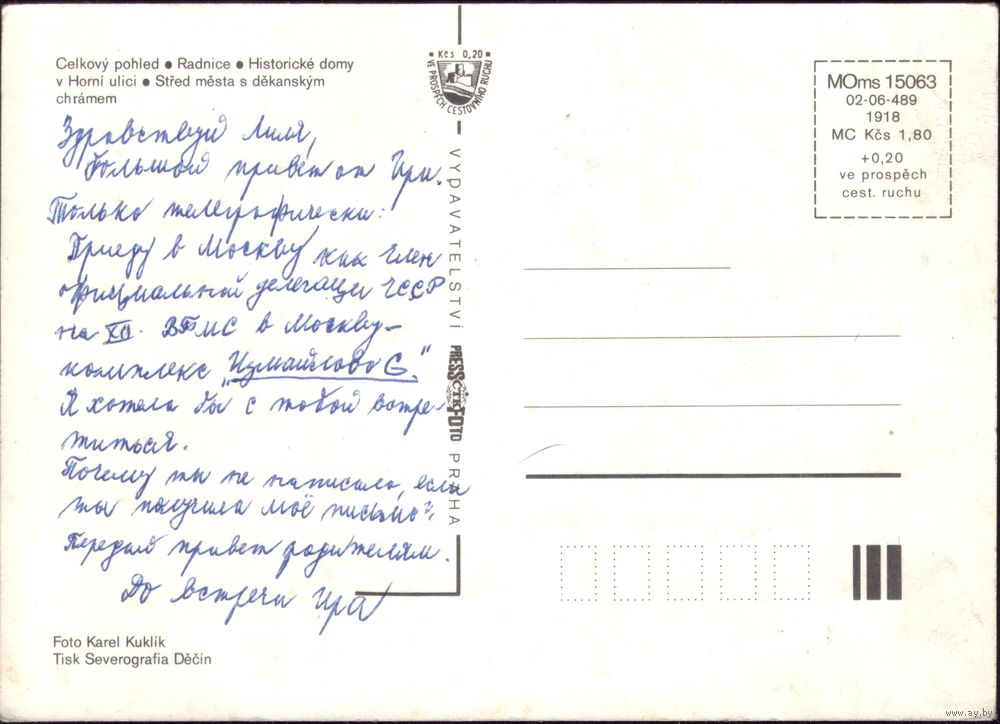 Celkový pohled ● Radnice ● Historické domy
v Horní ulici ● Střed města s děkanským
chrámem
Здравствуй Лиля,
большой привет от Иры.
Только телеграфически:
Приеду в Москву как член
официальной делегаци ЧССР
на XII. ВФМС в Москву –
комплекс "Измайлово G."
Я хотела бы с тобой встре-
титься.
Почему ты не написала, если
ты получила моё письмо?
Передай привет родителям.
До встречи Ира
Foto Karel Kuklík
Tisk Severografia Děčín
Kčs 0,20
VE PROSPĚCH CESTOVNÍHO RUCHU
VYDAVATELSTVÍ PRESSFOTO PRAHA
ČTK
MOms 15063
02-06-489
1918
MC Kčs 1,80
+0,20
ve prospěch
cest. ruchu
www.ay.by